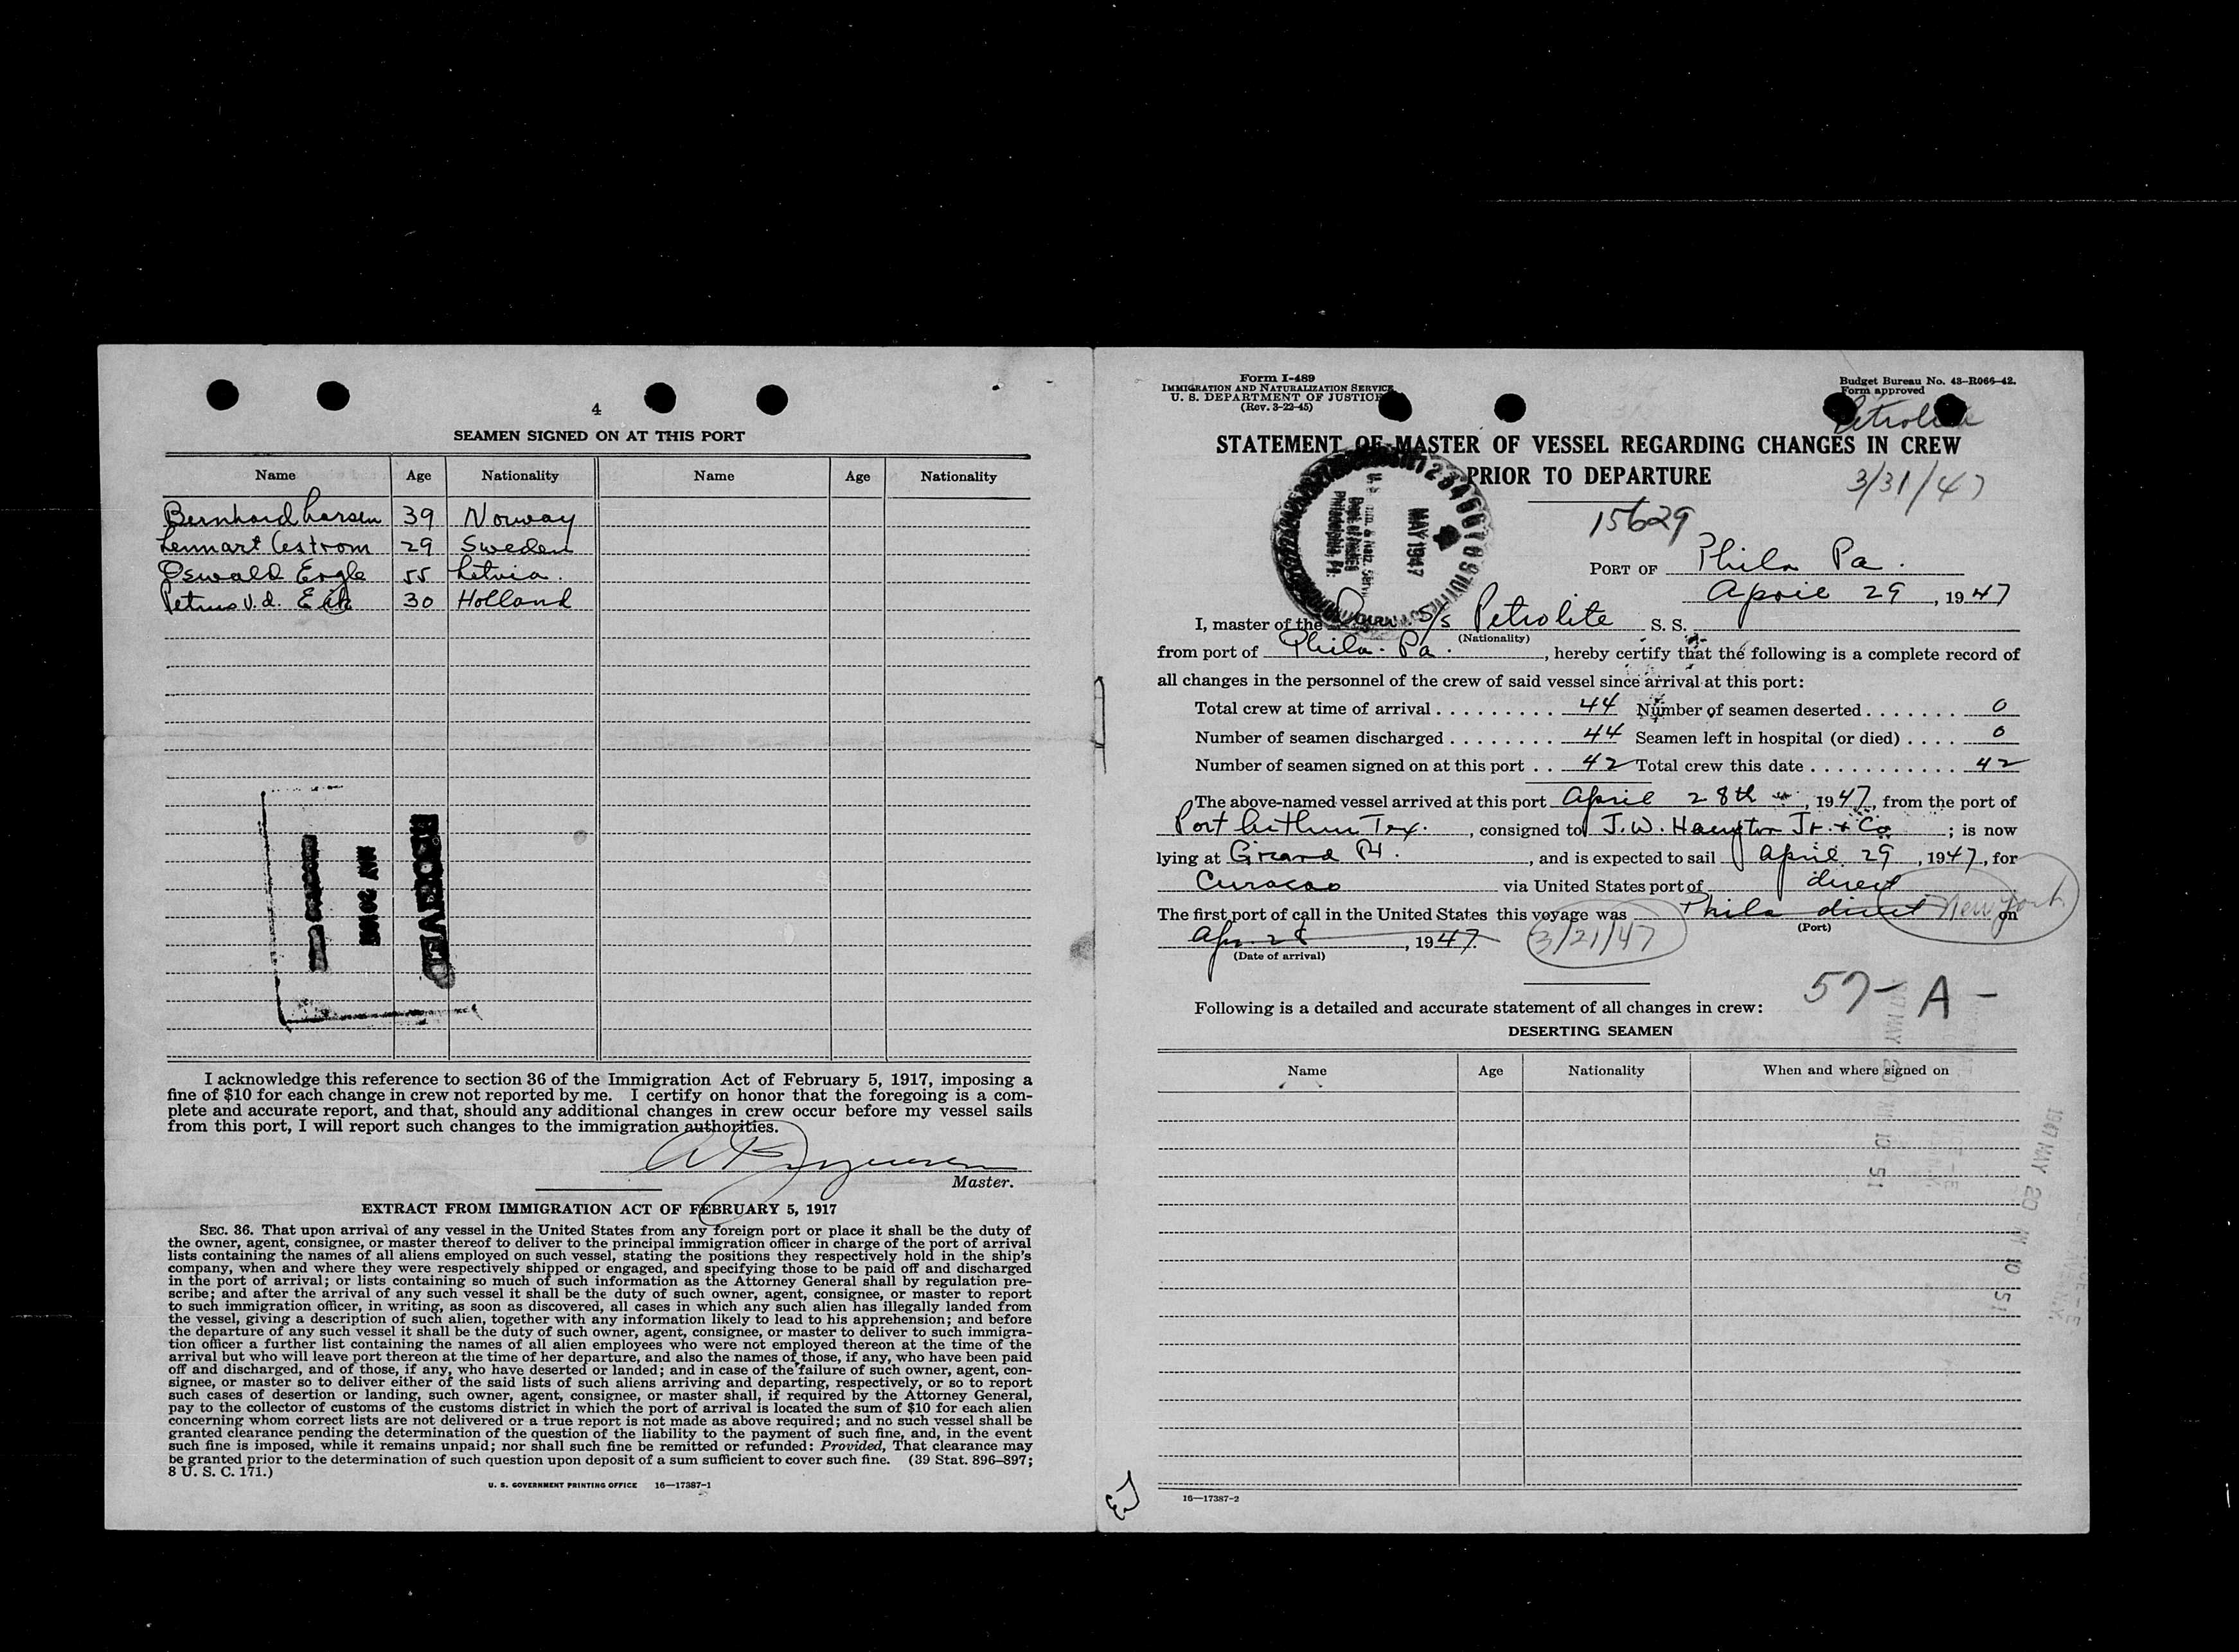 4
SEAMEN SIGNED ON AT THIS PORT
Name Age Nationality Name Age Nationality
Bernhard Larsen 39 Norway
Lennart 29 Sweden
Oswald Engle 55 Latvia.
Petrus v.d. Eik 30 Holland
RECEIVED
MAY 20
I acknowledge this reference to section 36 of the Immigration Act of February 5, 1917, imposing a
fine of $10 for each change in crew not reported by me. I certify on honor that the foregoing is a com-
plete and accurate report, and that, should any additional changes in crew occur before my vessel sails
from this port, I will report such changes to the immigration authorities.
Master.
EXTRACT FROM IMMIGRATION ACT OF FEBRUARY 5, 1917
SEC. 36. That upon arrival of any vessel in the United States from any foreign port or place it shall be the duty of
the owner, agent, consignee, or master thereof to deliver to the principal immigration officer in charge of the port of arrival
lists containing the names of all aliens employed on such vessel, stating the positions they respectively hold in the ship's
company, when and where they were respectively shipped or engaged, and specifying those to be paid off and discharged
in the port of arrival; or lists containing so much of such information as the Attorney General shall by regulation pre-
scribe; and after the arrival of any such vessel it shall be the duty of such owner, agent, consignee, or master to report
to such immigration officer, in writing, as soon as discovered, all cases in which any such alien has illegally landed from
the vessel, giving a description of such alien, together with any information likely to lead to his apprehension; and before
the departure of any such vessel it shall be the duty of such owner, agent, consignee, or master to deliver to such immigra-
tion officer a further list containing the names of all alien employees who were not employed thereon at the time of the
arrival but who will leave port thereon at the time of her departure, and also the names of those, if any, who have been paid
off and discharged, and of those, if any, who have deserted or landed; and in case of the failure of such owner, agent, con-
signee, or master so to deliver either of the said lists of such aliens arriving and departing, respectively, or so to report
such cases of desertion or landing, such owner, agent, consignee, or master shall, if required by the Attorney General,
pay to the collector of customs of the customs district in which the port of arrival is located the sum of $10 for each alien
concerning whom correct lists are not delivered or a true report is not made as above required; and no such vessel shall be
granted clearance pending the determination of the question of the liability to the payment of such fine, and, in the event
such fine is imposed, while it remains unpaid; nor shall such fine be remitted or refunded: Provided, That clearance may
be granted prior to the determination of such question upon deposit of a sum sufficient to cover such fine. (39 Stat. 896–897;
8 U. S. C. 171.)
U. S. GOVERNMENT PRINTING OFFICE 16—17387-1
Form I-489
IMMIGRATION AND NATURALIZATION SERVICE
U. S. DEPARTMENT OF JUSTICE
(Rev. 3-22-45)
Budget Bureau No. 43-R066-42.
Form approved
Petrolite
STATEMENT OF MASTER OF VESSEL REGARDING CHANGES IN CREW
PRIOR TO DEPARTURE
3/31/47
15629
MAY 1947
Philadelphia, Pa.
PORT OF Phila Pa.
April 29, 1947
I, master of the S/s Petrolite S. S.
(Nationality)
from port of Phila. Pa., hereby certify that the following is a complete record of
all changes in the personnel of the crew of said vessel since arrival at this port:
Total crew at time of arrival 44 Number of seamen deserted 0
Number of seamen discharged 44 Seamen left in hospital (or died) 0
Number of seamen signed on at this port 42 Total crew this date 42
The above-named vessel arrived at this port April 28th, 1947, from the port of
Port Arthur Tex., consigned to J.W. Hampton Jr. & Co; is now
lying at Girard Pt., and is expected to sail April 29, 1947, for
Curacao via United States port of direct
The first port of call in the United States this voyage was Phila direct New York on
(Port)
Apr 28, 1947. 3/21/47
(Date of arrival)
57-A-
Following is a detailed and accurate statement of all changes in crew:
DESERTING SEAMEN
Name Age Nationality When and where signed on
1947 MAY 20 10 51
16—17387-2